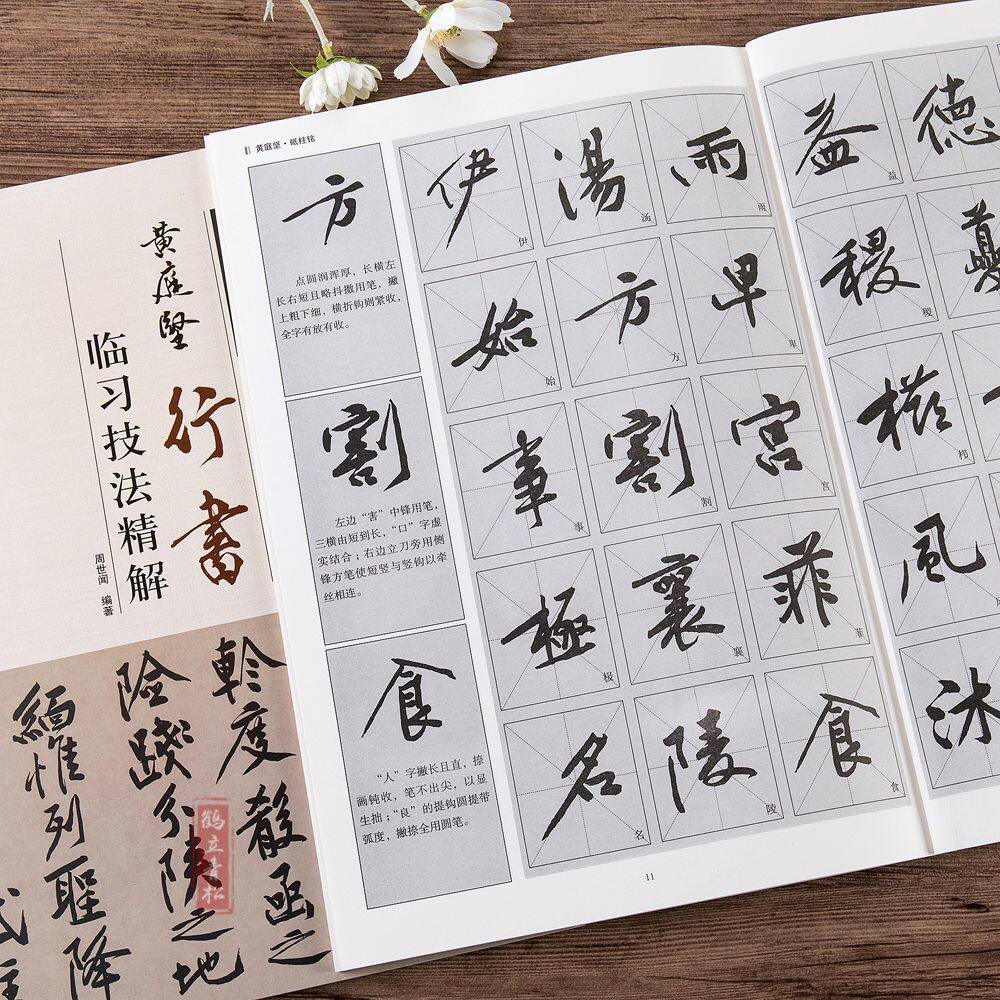 黄庭坚
行书
临习技法精解
周世闻 编著
軫度散函之
險蹤分陝之地
緬惟列聖降
鹤立青松
黄庭坚·砥柱铭
方
点圆润浑厚，长横左
长右短且略抖擞用笔，撇
上粗下细，横折钩则紧收，
全字有放有收。
割
左边“害”中锋用笔，
三横由短到长，“口”字虚
实结合；右边立刀旁用侧
锋方笔使短竖与竖钩以牵
丝相连。
食
“人”字撇长且直，捺
画钝收，笔不出尖，以显
生拙；“良”的提钩圆提带
弧度，撇捺全用圆笔。
伊 伊 湯 汤 雨 雨
始 始 方 方 卑 卑
事 事 割 割 宫 宫
極 极 襄 襄 菲 菲
名 名 陵 陵 食 食
11
益 益 德
稷 稷
风
沐